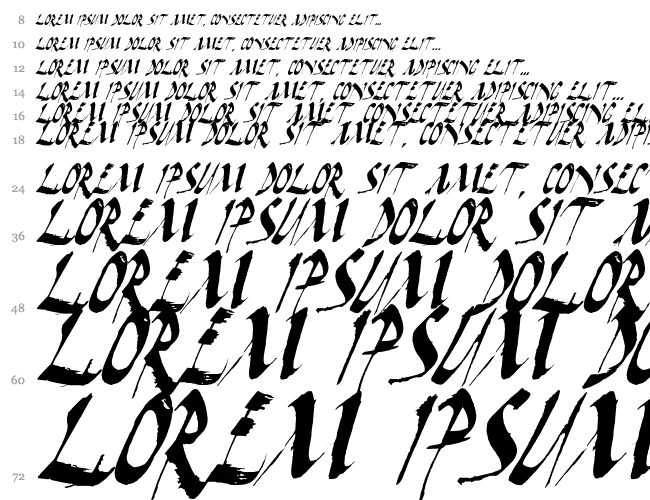 8 LOREM IPSUM DOLOR SIT AMET, CONSECTETUER ADIPISCING ELIT...
10 LOREM IPSUM DOLOR SIT AMET, CONSECTETUER ADIPISCING ELIT...
12 LOREM IPSUM DOLOR SIT AMET, CONSECTETUER ADIPISCING ELIT...
14 LOREM IPSUM DOLOR SIT AMET, CONSECTETUER ADIPISCING ELIT...
16 LOREM IPSUM DOLOR SIT AMET, CONSECTETUER ADIPISCING EL
18 LOREM IPSUM DOLOR SIT AMET, CONSECTETUER ADIPI
24 LOREM IPSUM DOLOR SIT AMET, CONSEC
36 LOREM IPSUM DOLOR SIT
48 LOREM IPSUM DOLOR
60 LOREM IPSUM DO
72 LOREM IPSUM